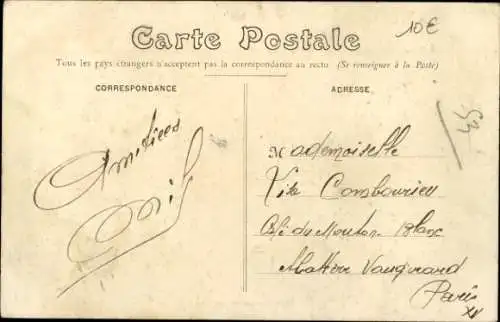 10€
Carte Postale
Tous les pays étrangers n'acceptent pas la correspondance au recto (Se renseigner à la Poste)
CORRESPONDANCE
ADRESSE
Amitiées
Mademoiselle
Café du Mouton Blanc
Vaugirard
Paris
XV